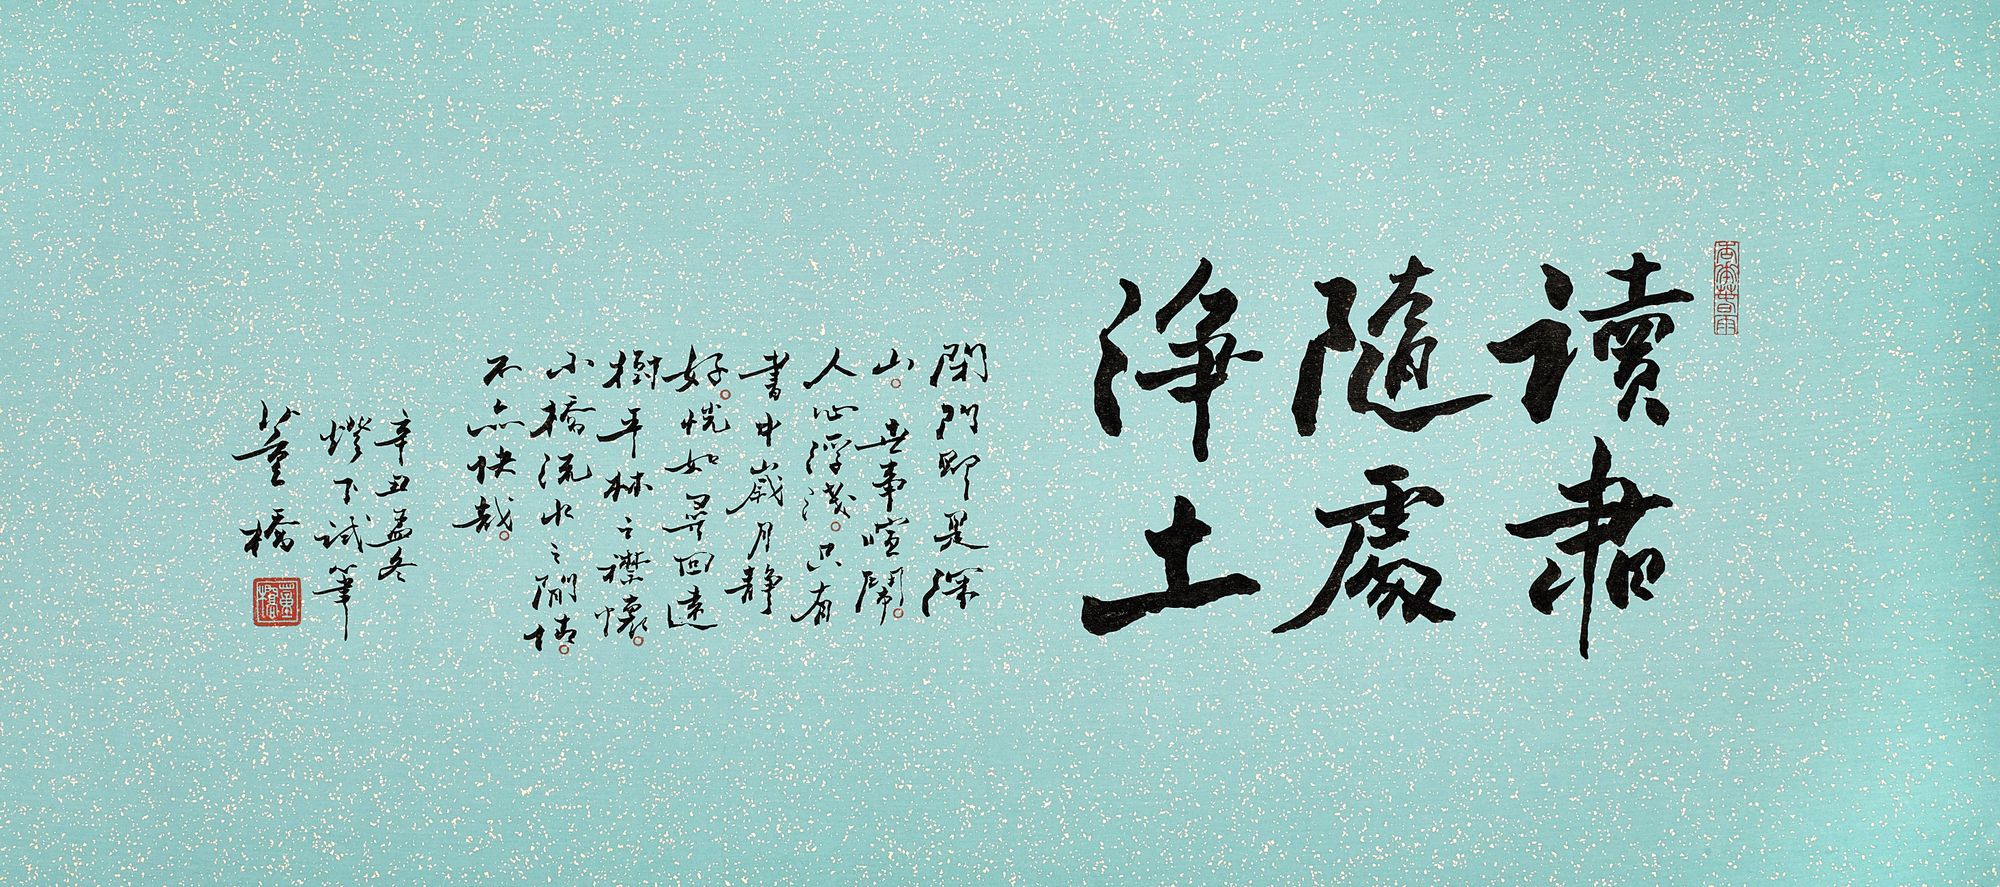 讀書
隨處
淨土
閉門即是深
山。世事喧鬧。
人心浮淺。只有
書中歲月靜
好。恍如尋回遠
樹平林之襟懷。
小橋流水之閒情。
不亦快哉。
辛丑孟冬
燈下試筆
董橋
董橋